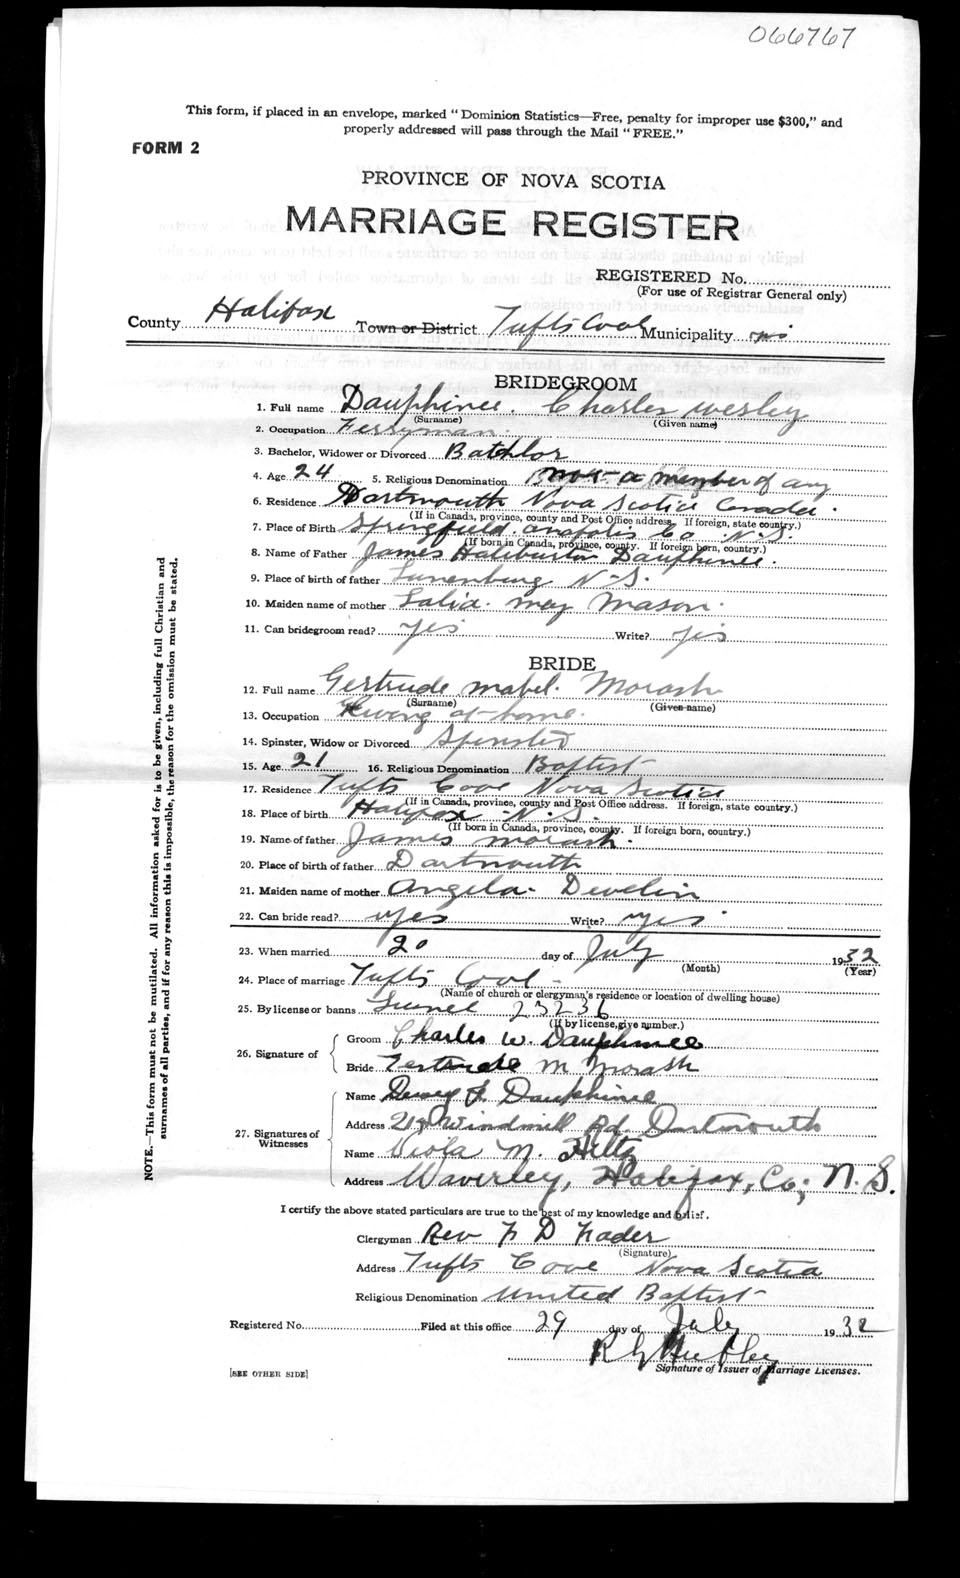 066767
This form, if placed in an envelope, marked "Dominion Statistics—Free, penalty for improper use $300," and
properly addressed will pass through the Mail "FREE."
FORM 2
PROVINCE OF NOVA SCOTIA
MARRIAGE REGISTER
REGISTERED No.
(For use of Registrar General only)
County Halifax Town or District Tufts Cove Municipality
BRIDEGROOM
1. Full name Dauphinee. Charles Wesley
(Surname) (Given name)
2. Occupation Ferryman.
3. Bachelor, Widower or Divorced Batchlor
4. Age 24 5. Religious Denomination not a member of any
6. Residence Dartmouth Nova Scotia Canada.
(If in Canada, province, county and Post Office address. If foreign, state country.)
7. Place of Birth Springfield anapolis Co N.S.
(If born in Canada, province, county. If foreign born, country.)
8. Name of Father James Haliburton Dauphinee.
9. Place of birth of father Lunenburg N-S.
10. Maiden name of mother Lalia. may Mason.
11. Can bridegroom read? yes Write? yes
BRIDE
12. Full name Gertrude mabel. Morash
(Surname) (Given name)
13. Occupation living at home.
14. Spinster, Widow or Divorced Spinster
15. Age 21 16. Religious Denomination Baptist
17. Residence Tufts Cove Nova Scotia
(If in Canada, province, county and Post Office address. If foreign, state country.)
18. Place of birth Halifax N.S.
(If born in Canada, province, county. If foreign born, country.)
19. Name of father James morash.
20. Place of birth of father Dartmouth
21. Maiden name of mother Angela- Develin
22. Can bride read? yes Write? yes.
23. When married 20 day of July 1932
(Month) (Year)
24. Place of marriage Tufts Cove
(Name of church or clergyman's residence or location of dwelling house)
25. By license or banns 23236
(If by license, give number.)
26. Signature of
Groom Charles W. Dauphinee
Bride Gertrude M Morash
27. Signatures of Witnesses
Name Dauphinee
Address Windmill Rd. Dartmouth
Name Viola M. Hiltz
Address Waverley, Halifax, Co; N.S.
I certify the above stated particulars are true to the best of my knowledge and belief.
Clergyman Rev F D Nader
(Signature)
Address Tufts Cove Nova Scotia
Religious Denomination United Baptist
Registered No. Filed at this office 29 day of July 1932
Signature of Issuer of Marriage Licenses.
[SEE OTHER SIDE]
NOTE.—This form must not be mutilated. All information asked for is to be given, including full Christian and
surnames of all parties, and if for any reason this is impossible, the reason for the omission must be stated.